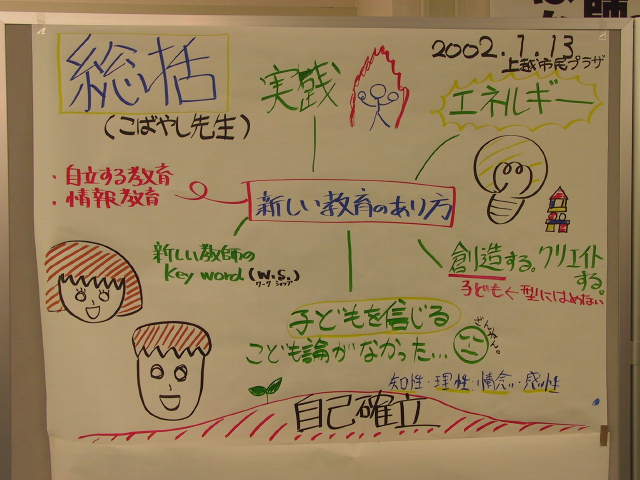 総括
(こばやし先生)
実践
2002.1.13
上越市民プラザ
エネルギー
・自立する教育
・情報教育
新しい教育のあり方
新しい教師の
Key word (W.S.)
ワークショップ
創造する。クリエイト
する。
子ども←型にはめない
子どもを信じる
こども論がなかった…
ざんねん。
知性・理性・情念・感性
自己確立